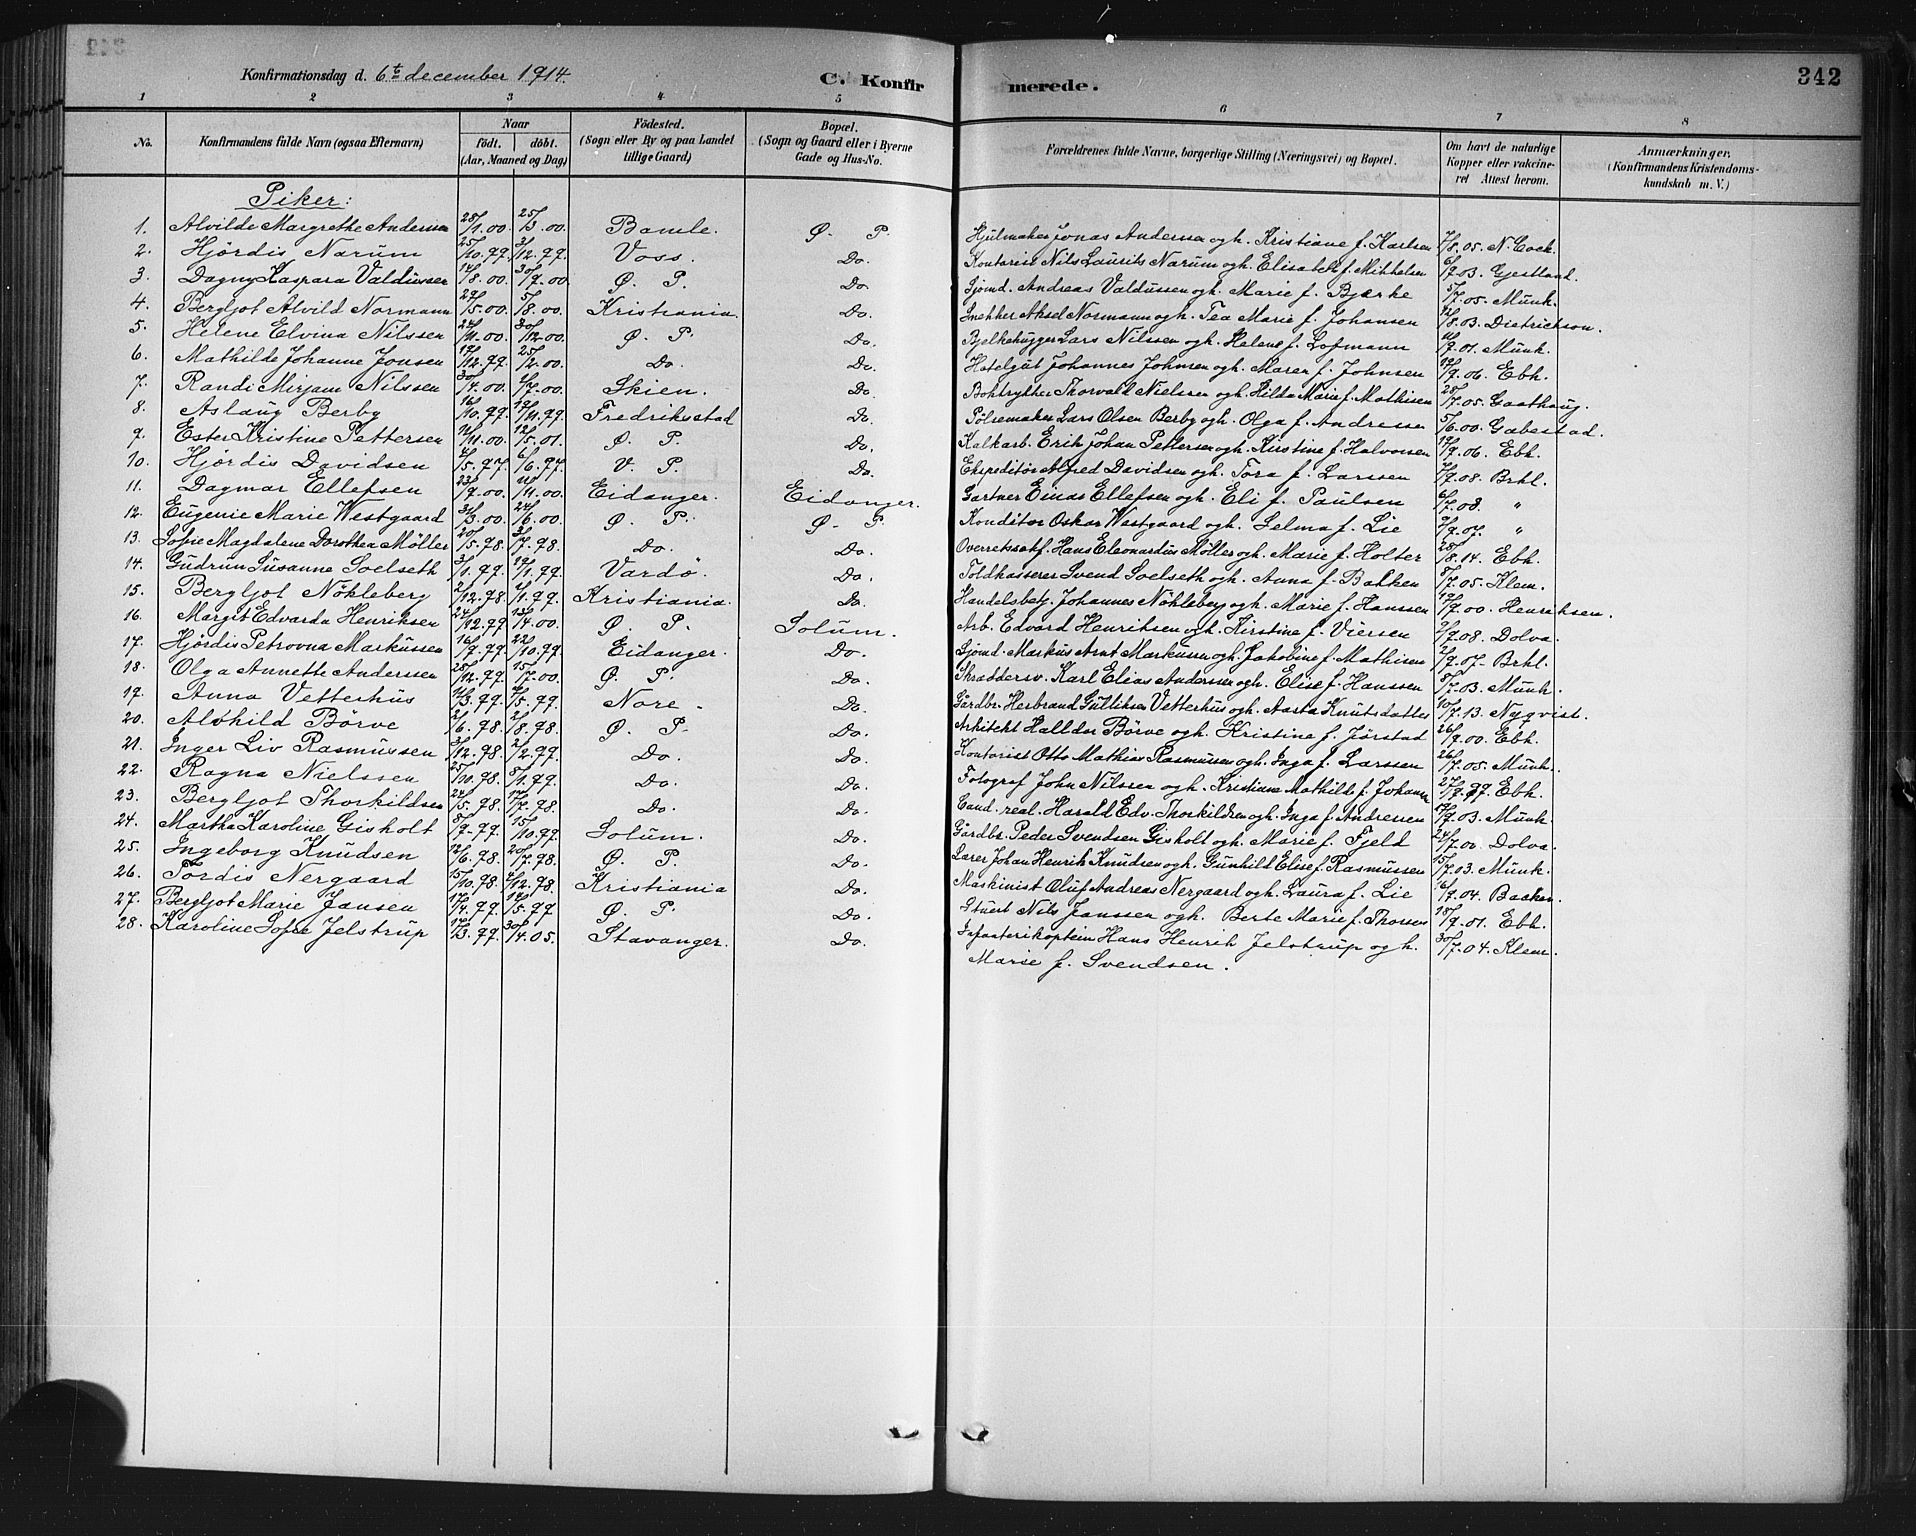 342
Konfirmationsdag d. 6te december 1914.
C. Konfirmerede.
1 2 3 4 5 6 7 8
No. Konfirmandens fulde Navn (ogsaa Efternavn) Naar født. døbt. (Aar, Maaned og Dag) Fødested. (Sogn eller By og paa Landet tillige Gaard) Bopæl. (Sogn og Gaard eller i Byerne Gade og Hus-No. Forældrenes fulde Navne, borgerlige Stilling (Næringsvei) og Bopæl. Om havt de naturlige Kopper eller vakcineret Attest herom. Anmærkninger. (Konfirmandens Kristendomskundskab m. V.)
Piker:
1. Alvilde Margrethe Andersen 28/1.00 25/3.00 Bamle. Ø. P. Hjulmaker Jonas Andersen og h. Kristiane f. Karlsen 7/8.05. N. Cock.
2. Hjördis Narum 25/10.99. 31/12.99. Voss. Do. Kontorist Nils Laurits Narum og h. Elisabeth f. Mikkelsen 6/9.03. Gjestland.
3. Dagny Kaspara Valdussen 14/8.00 30/9.00 Ø. P. Do. Sjömd. Andreas Valdussen og h. Marie f. Bjerke 5/7.05. Munk.
4. Bergljot Alvild Normann 29/5.00. 5/8.00. Kristiania. Do. Snekker Aksel Normann og h. Tea Marie f. Johansen /8.03. Dietrichson.
5. Helene Elvina Nilsen 24/11.00 30/12.00 Ø. P. Do. Bjelkehugger Lars Nilssen og h. Helene f. Lofmann /9.01. Munk.
6. Mathilde Johanne Jonsen 19/12.99 25/2.00 Do. Do. Hotelgut Johannes Johnsen og h. Maren f. Johnsen 19/9.06. Ebh.
7. Randi Mirjam Nilssen 30/4.00 /7.00. Skien. Do. Boktrykker Thorvald Nielsen og h. Hilda Marie f. Mathisen 28/7.05. Gaathaug.
8. Aslaug Berby 16/10.99. 19/11.99. Fredriksstad Do. Pölsemaker Lars Olsen Berby og h. Olga f. Andresen 5/6.00. Gabestad.
9. Ester Kristine Pettersen /11.00. 12/5.01. Ø. P. Do. Kalkarb. Erik Johan Pettersen og h. Kirstine f. Halvorsen 19/9.06. Ebh.
10. Hjördis Davidsen 4/5.97. 6/6.97. V. P. Do. Ekspeditör Alfred Davidsen og h. Tora f. Larssen 7/9.08. Brkl.
11. Dagmar Ellefsen 23/9.00. /11.00. Eidanger. Eidanger. Gartner Einar Ellefsen og h. Eli f. Paulsen 6/7.08. "
12. Eugenie Marie Westgaard 31/3.00 24/6.00. Ø. P. Ø. P. Konditor Oskar Westgaard og h. Selma f. Lie 9/9.07. "
13. Sofie Magdalene Dorothea Møller 20/5.98. 3/7.98. Do. Do. Overretssakf. Hans Eleonardus Møller og h. Marie f. Holter 28/8.14. Ebh.
14. Gudrun Susanne Soelseth 3/1.99. 29/1.99. Vardö. Do. Toldkasserer Svend Soelseth og h. Anna f. Bakken 8/7.05. Klem.
15. Bergljot Nökleberg 2/12.98. /1.99. Kristiania. Do. Handelsbetj. Johannes Nökleberg og h. Marie f. Hanssen 19/9.00. Henriksen.
16. Margit Edvarda Henriksen 24/12.99 13/4.00. Ø. P. Solum. Arb. Edvard Henriksen og h. Kirstine f. Viersen 9/9.08. Dolva.
17. Hjördis Petrovna Markussen 16/9.99. 22/10.99. Eidanger. Do. Sjömd. Markus Arnt Markussen og h. Jakobine f. Mathisen 2/9.07. Brkl.
18. Olga Annette Andersen 28/12.99. 15/7.00. Ø. P. Do. Skræddersv. Karl Elias Anderssen og h. Elise f. Hanssen 8/7.03. Munk.
19. Anna Vetterhus /3.99. /5.99. Nore. Do. Gårdbr. Herbrand Gulliksen Vetterhus og h. Aarta Knutsdatter 10/7.13. Nyqvist.
20. Alvhild Börve 2/6.98. 2/8.98. Ø. P. Do. Arkitekt Halldor Börve og h. Kristine f. Jørstad 26/9.00. Ebh.
21. Inger Liv Rasmussen 31/12.98. 2/2.99. Do. Do. Kontorist Otto Mathias Rasmussen og h. Inga f. Larssen 26/7.05. Munk.
22. Ragna Nielssen 25/10.98. 8/1.99. Do. Do. Fotograf John Nilssen og h. Kristiane Mathilde f. Johansen 27/9.99. Ebh.
23. Bergljot Thorkildsen 24/5.98. 17/7.98. Do. Do. Cand. real. Harald Edv. Thorkildsen og h. Inga f. Andressen 17/9.03. Munk.
24. Martha Karoline Gisholt 5/9.99. 15/10.99. Solum. Do. Gårdbr. Peder Svendsen Gisholt og h. Marie f. Fjeld 24/7.00. Dolva.
25. Ingeborg Knudsen 12/6.98. 20/7.98. Ø. P. Do. Lærer Johan Henrik Knudsen og h. Gunhild Elise f. Rasmussen 15/7.03. Munk.
26. Tordis Nergaard 15/10.98. 4/12.98. Kristiania Do. Maskinist Oluf Andreas Nergaard og h. Laura f. Lie 6/9.04. Backer.
27. Bergljot Marie Jansen 17/4.99. 14/5.99. Ø. P. Do. Stuert Nils Janssen og h. Berte Marie f. Thorsen 18/9.01. Ebh.
28. Karoline Sofie Jelstrup 17/3.99. 30/4.05. Stavanger. Do. Infanterikaptein Hans Henrik Jelstrup og h. 30/7.04. Klem.
Marie f. Svendsen.